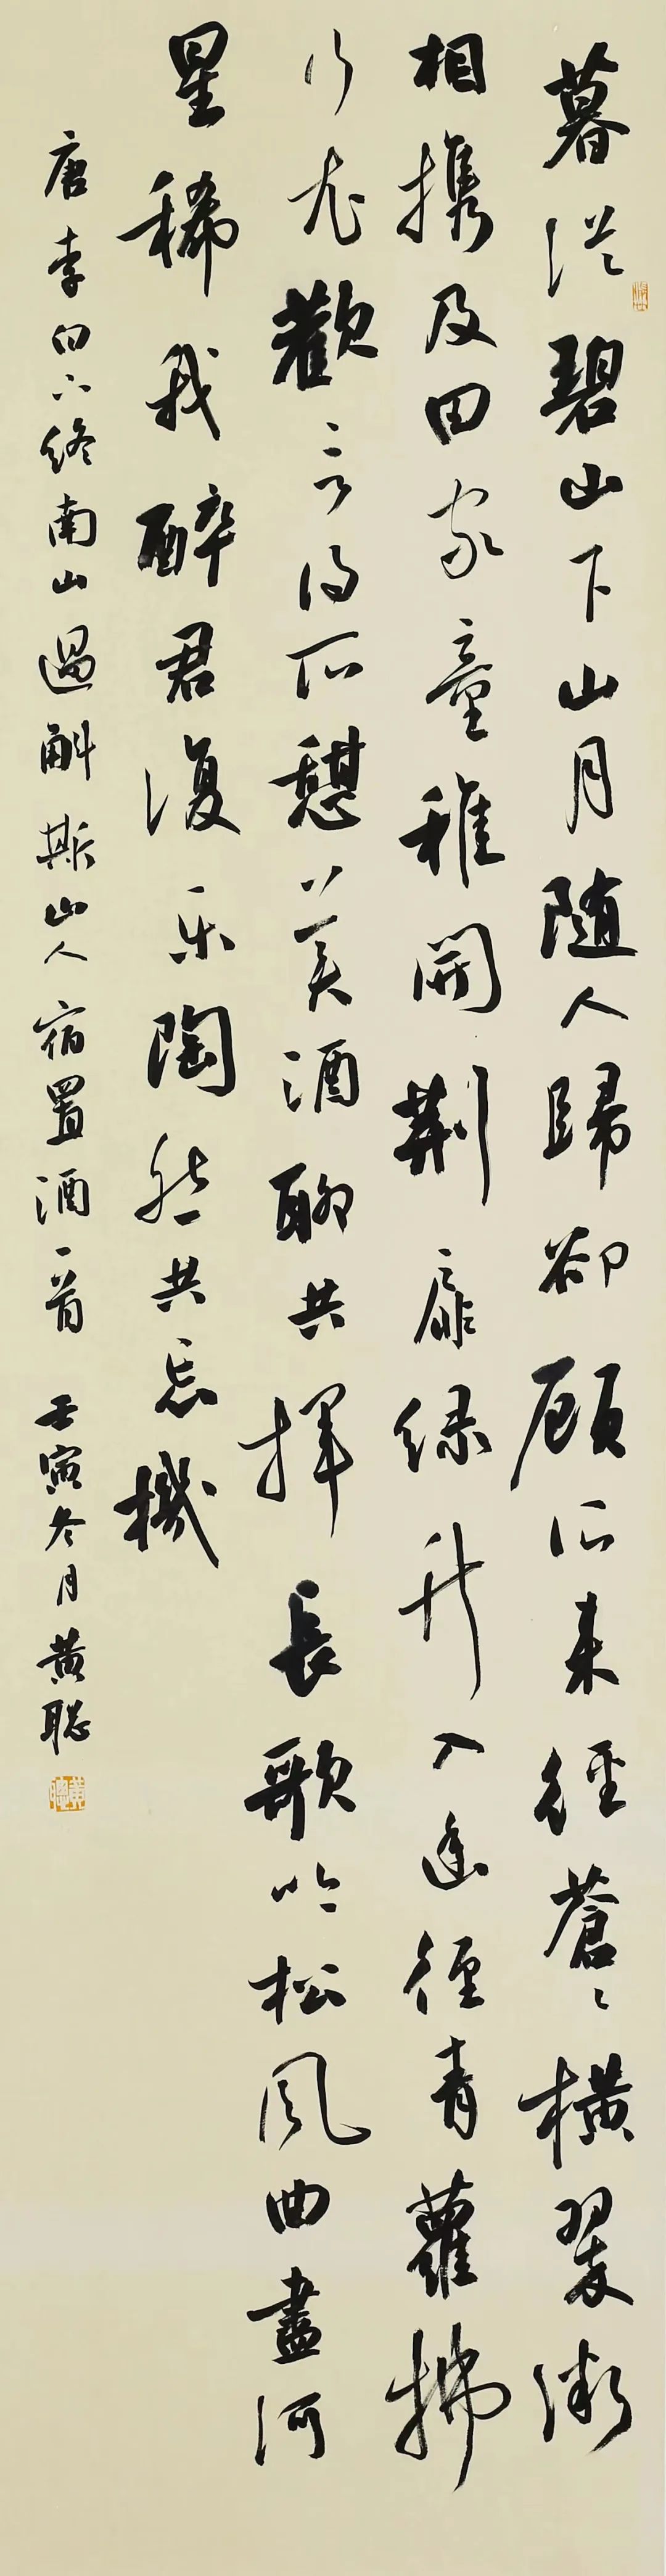 暮從碧山下山月随人歸卻顾所来徑蒼々橫翠微
相携及田家童稚開荆扉绿竹入幽徑青蘿拂
行衣歡言得所憩美酒聊共揮長歌吟松風曲盡河
星稀我醉君復乐陶然共忘機
唐李白下终南山過斛斯山人宿置酒一首 壬寅冬月黄聪
黄聰